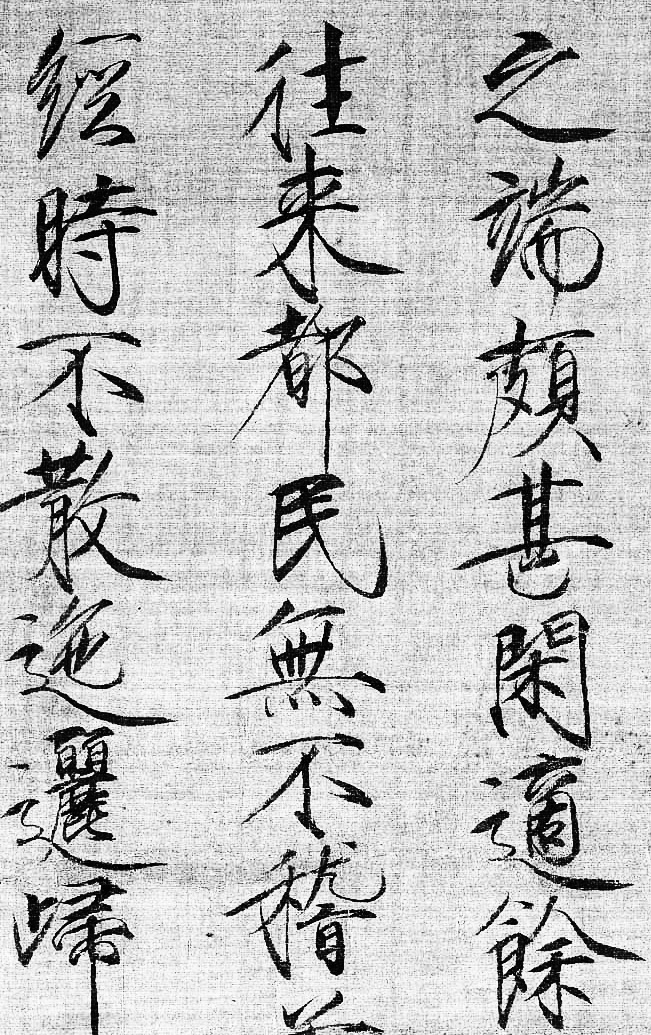 之端頗甚閑適餘
往来都民無不稽
經時不散迤邐歸